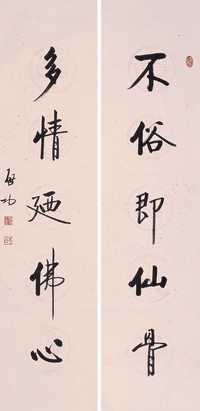 不俗即仙骨
多情廼佛心
启功